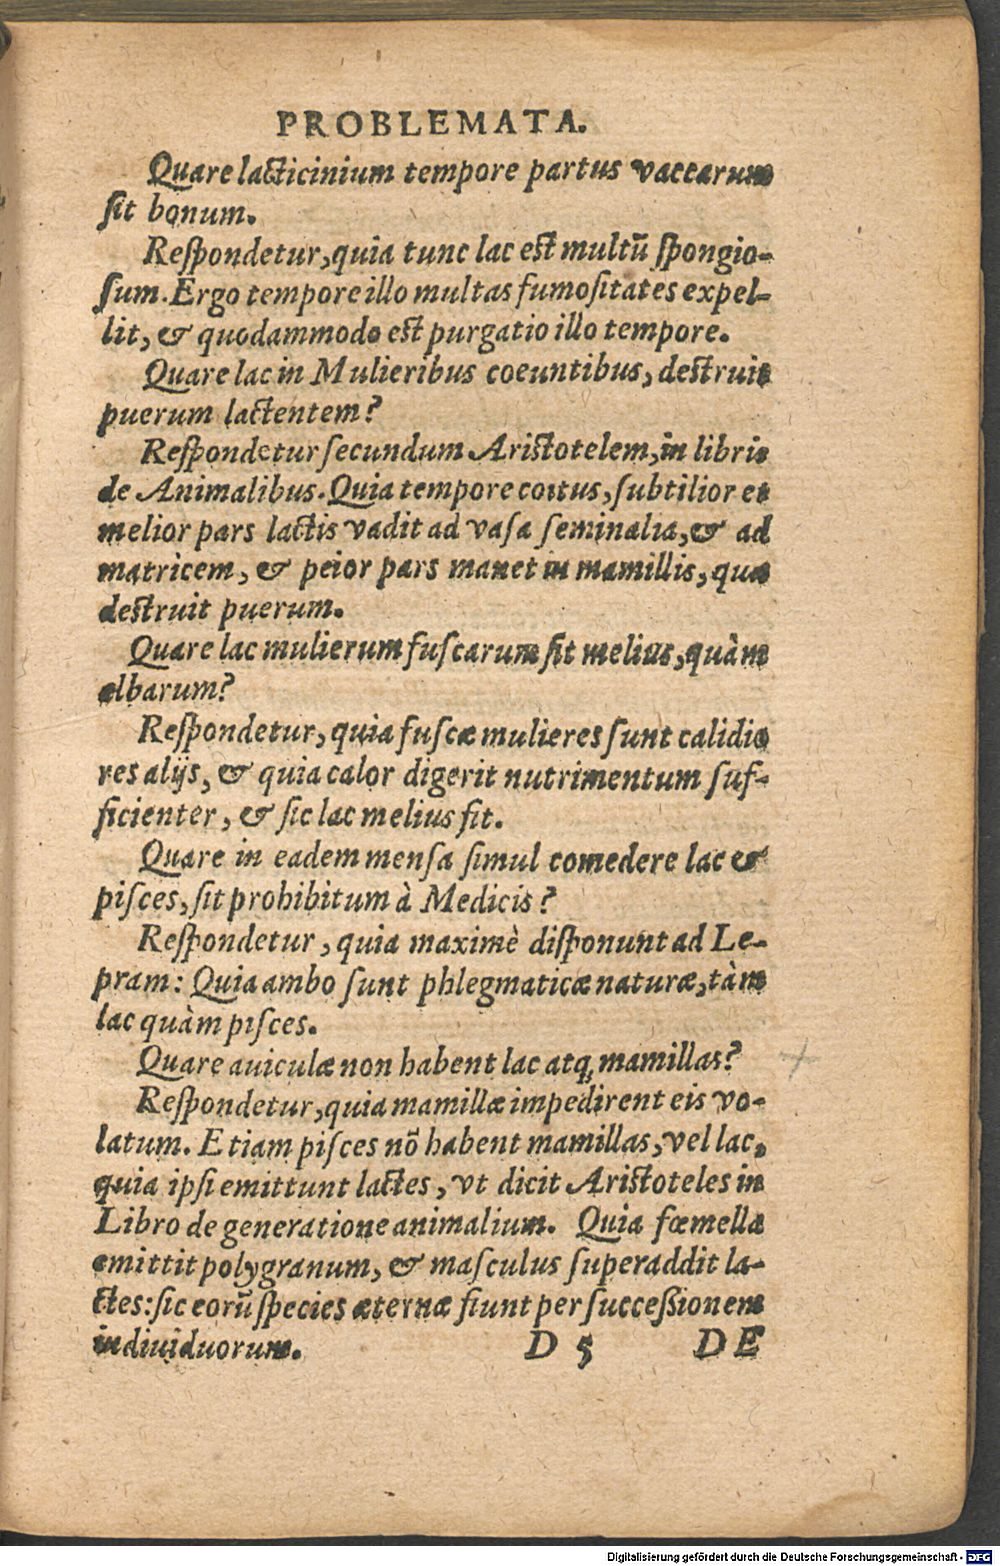 PROBLEMATA.
Quare lacticinium tempore partus vaccarum
ſit bonum.
Reſpondetur, quia tunc lac est multũ ſpongio-
ſum. Ergo tempore illo multas fumoſitates expel-
lit, & quodammodo est purgatio illo tempore.
Quare lac in Mulieribus coeuntibus, destruit
puerum lactentem?
Reſpondetur ſecundum Aristotelem, in libris
de Animalibus. Quia tempore coitus, ſubtilior et
melior pars lactis vadit ad vaſa ſeminalia, & ad
matricem, & peior pars manet in mamillis, quæ
destruit puerum.
Quare lac mulierum fuſcarum ſit melius, quàm
albarum?
Reſpondetur, quia fuſcæ mulieres ſunt calidio
res alijs, & quia calor digerit nutrimentum ſuf-
ficienter, & ſic lac melius fit.
Quare in eadem menſa ſimul comedere lac &
piſces, ſit prohibitum à Medicis?
Reſpondetur, quia maximè diſponunt ad Le-
pram: Quia ambo ſunt phlegmaticæ naturæ, tàm
lac quàm piſces.
Quare auiculæ non habent lac atq; mamillas?
Reſpondetur, quia mamillæ impedirent eis vo-
latum. Etiam piſces nõ habent mamillas, vel lac,
quia ipſi emittunt lactes, vt dicit Aristoteles in
Libro de generatione animalium. Quia fœmella
emittit polygranum, & maſculus ſuperaddit la-
ctes: ſic eorũ ſpecies æternæ fiunt per ſucceßionem
indiuiduorum.
D 5 DE
Digitalisierung gefördert durch die Deutsche Forschungsgemeinschaft - DFG